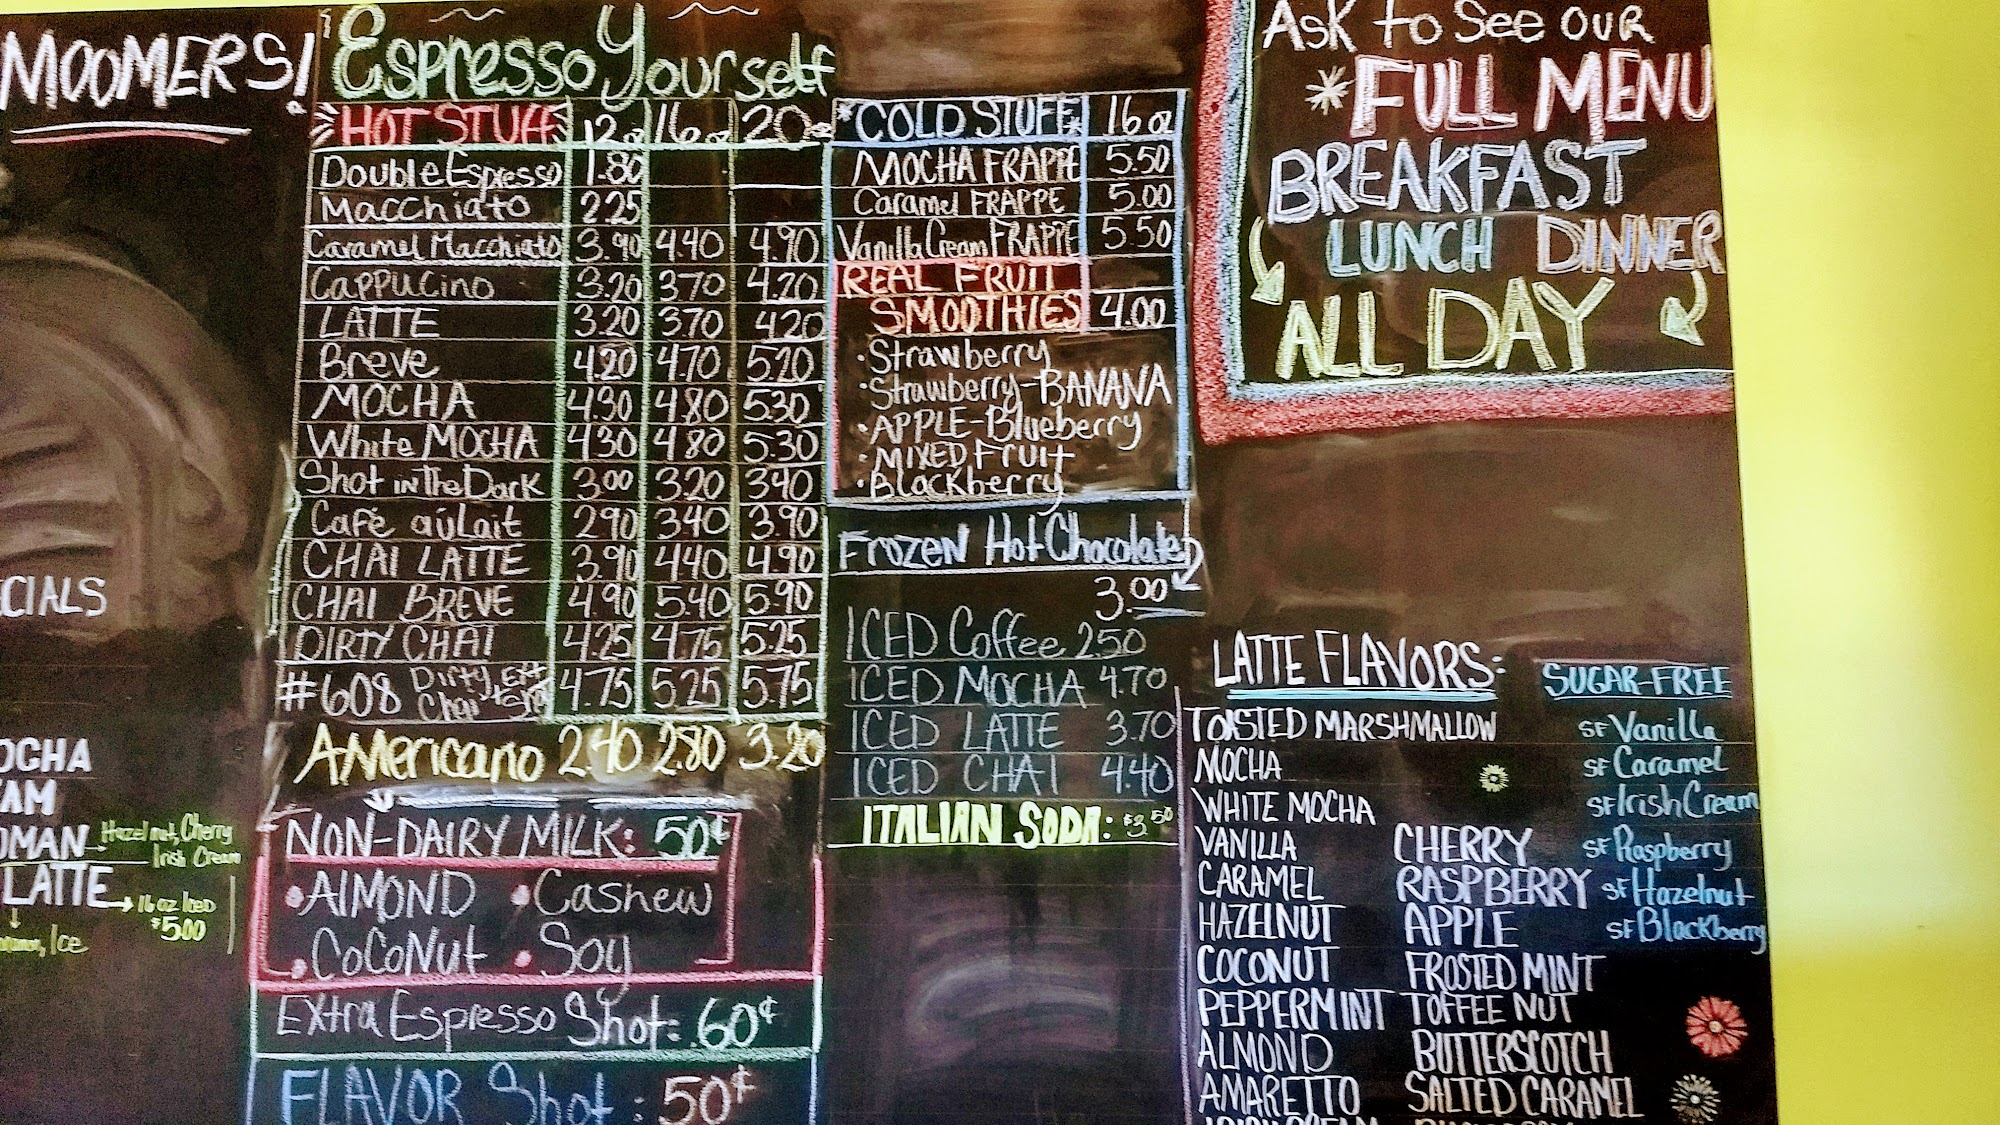 MOOMERS!
CIALS
OCHA
OMAN Hazelnut, Cherry
Irish Cream
LATTE → 16 oz Iced
$5.00
Ice
Espresso Yourself
HOT STUFF 12oz 16oz 20oz
Double Espresso 1.80
Macchiato 2.25
Caramel Macchiato 3.90 4.40 4.90
CAPPUCino 3.20 3.70 4.20
LATTE 3.20 3.70 4.20
Breve 4.20 4.70 5.20
MOCHA 4.30 4.80 5.30
White MOCHA 4.30 4.80 5.30
Shot in The Dark 3.00 3.20 3.40
Café aúLait 2.90 3.40 3.90
CHAI LATTE 3.90 4.40 4.90
CHAI BREVE 4.90 5.40 5.90
DIRTY CHAI 4.25 4.75 5.25
#608 Dirty Chai 4.75 5.25 5.75
AMericano 2.40 2.80 3.20
NON-DAIRY MILK: 50¢
•AlMOND •Cashew
•CoCoNut •Soy
Extra Espresso Shot: .60¢
FLAVOR Shot: 50¢
*COLD STUFF* 16oz
MOCHA FRAPPE 5.50
Caramel FRAPPE 5.00
Vanilla Cream FRAPPE 5.50
REAL FRUIT
SMOOTHIES 4.00
•Strawberry
•Strawberry-BANANA
•APPLE-Blueberry
•MIXED FRUIT
•Blackberry
Frozen Hot Chocolate
3.00
ICED Coffee 2.50
ICED MOCHA 4.70
ICED LATTE 3.70
ICED CHAI 4.40
ITALIAN SODA: $3.50
ASK to See OUR
*FULL MENU
BREAKFAST
LUNCH DINNER
ALL DAY
LATTE FLAVORS:
TOASTED MARSHMALLOW
MOCHA
WHITE MOCHA
VANILLA
CARAMEL
HAZELNUT
COCONUT
PEPPERMINT
ALMOND
AMARETTO
CHERRY
RASPBERRY
APPLE
FROSTED MINT
TOFFEE NUT
BUTTERSCOTCH
SALTED CARAMEL
SUGAR-FREE
SF Vanilla
SF Caramel
SF Irish Cream
SF Raspberry
SF Hazelnut
SF Blackberry